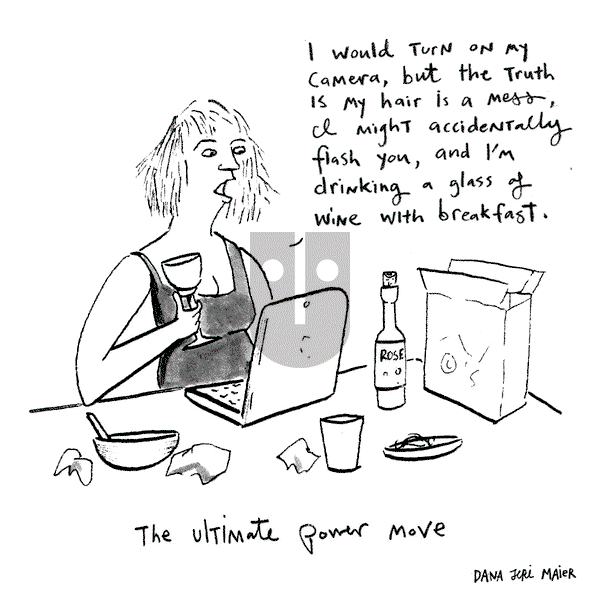 I would turn on my
camera, but the truth
is my hair is a mess,
I might accidentally
flash you, and I'm
drinking a glass of
wine with breakfast.
ROSE
The ultimate power move
DANA JERI MAIER